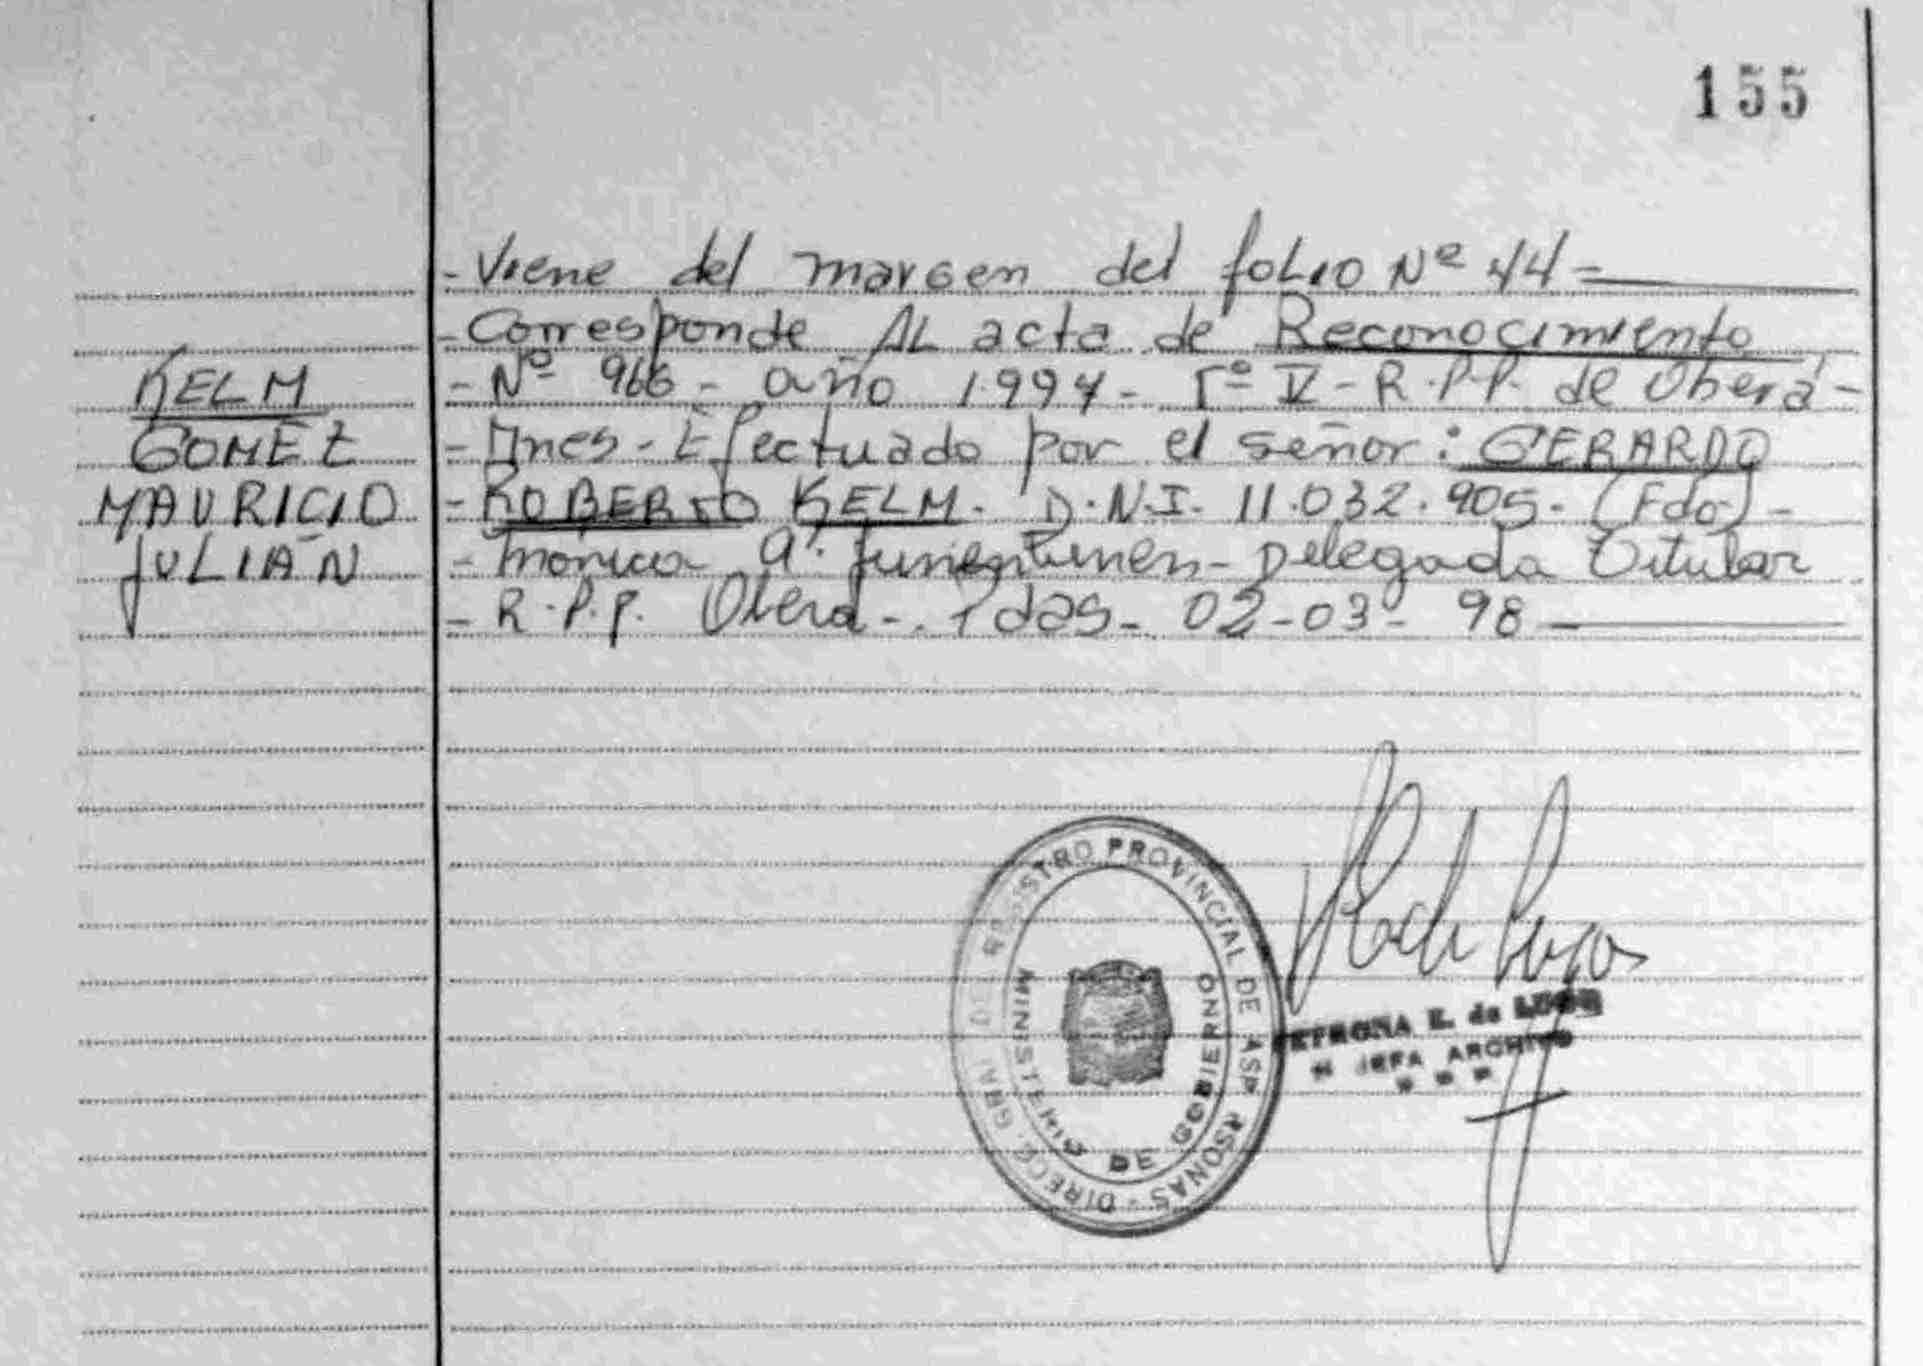 155
- Viene del margen del folio Nº 44 -
- Corresponde AL acta de Reconocimiento
KELM
- Nº 966 - año 1.997 - Tº V - R.P.P. de Oberá -
GOMEZ
- Mnes - Efectuado por el señor: GERARDO
MAURICIO
- ROBERTO KELM. D.N.I. 11.032.905. (Fdo) -
JULIAN
- Mónica A. Delegada Titular
- R.P.P. Oberá - Pdas - 02-03-98
REGISTRO PROVINCIAL DE
PERSONAS - DIRECC. GRAL DEL
MINISTERIO DE GOBIERNO
PETRONA E. de LUGO
JEFA ARCHIVO